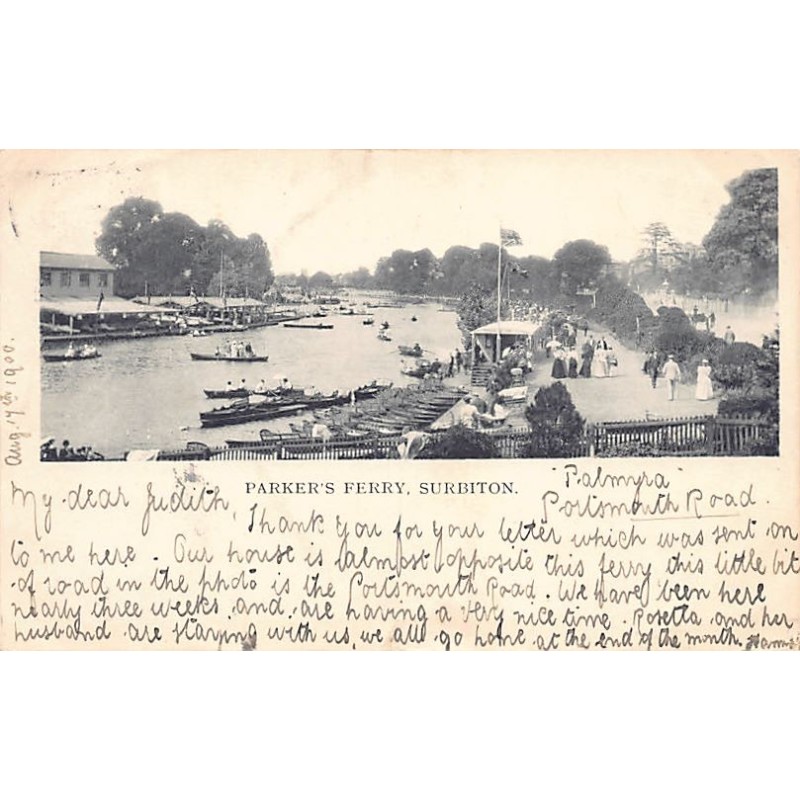 Aug. 17th 1900.
PARKER'S FERRY, SURBITON.
"Palmyra"
Portsmouth Road.
My dear Judith,
Thank you for your letter which was sent on
to me here. Our house is almost opposite this ferry this little bit
of road in the photo is the Portsmouth Road. We have been here
nearly three weeks and are having a very nice time. Rosetta and her
husband are staying with us, we all go home at the end of the month.